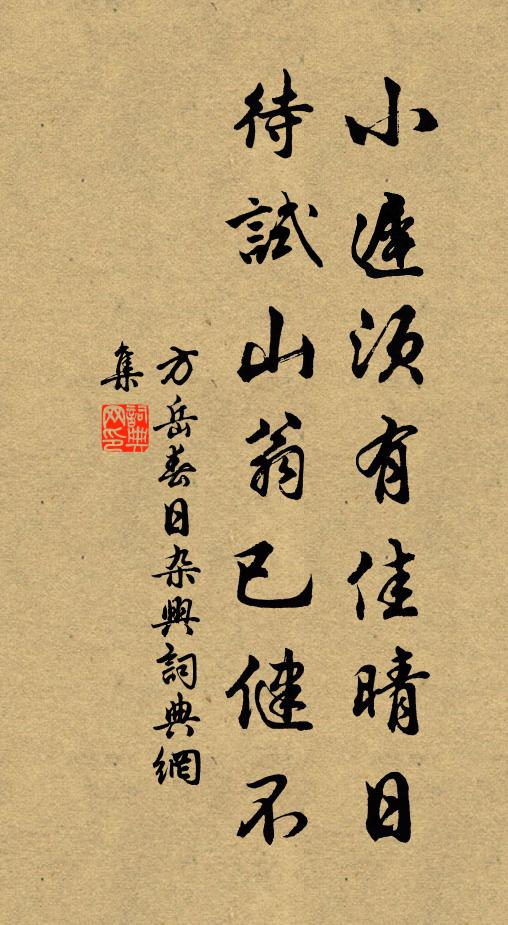 小遲須有佳晴日
待試山翁已健不
方岳春日杂興詞典網
集
詞典网印